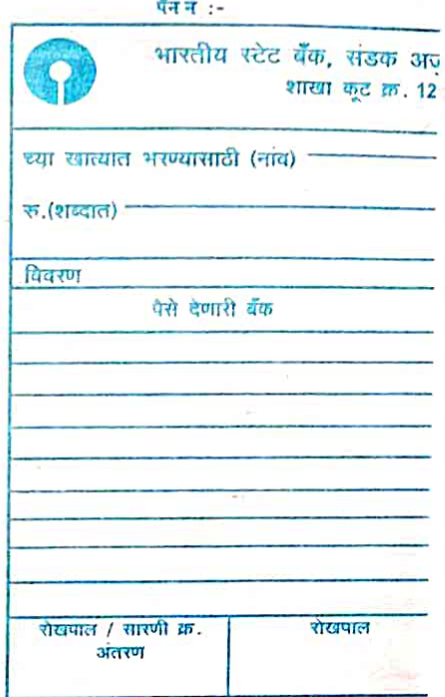 पॅन नं :-
भारतीय स्टेट बँक, संडक
शाखा कूट क्र. 12
च्या खात्यात भरण्यासाठी (नांव)
रू.(शब्दात)
विवरण
पैसे देणारी बँक
रोखपाल / सारणी क्र.
अंतरण
रोखपाल